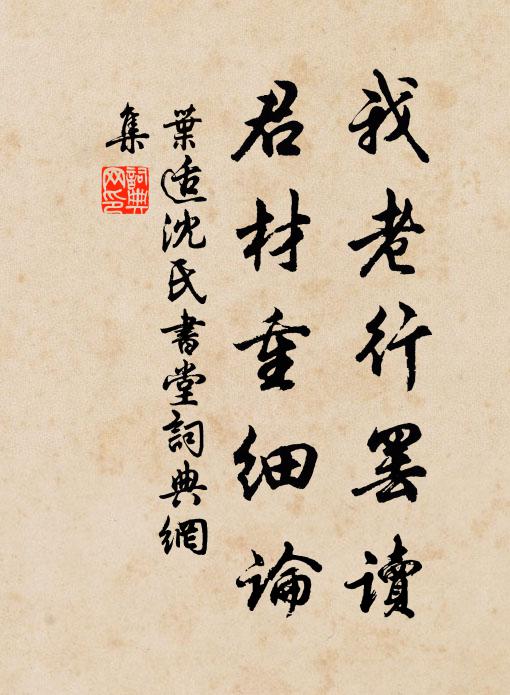 我老行罢讀
君材重细論
葉适沈氏書堂詞典網
集
詞典网印